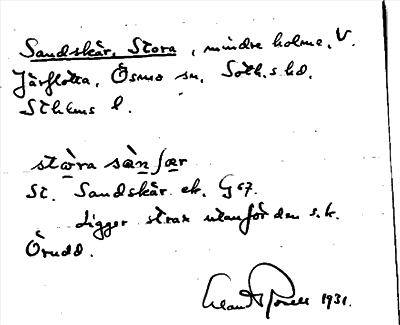 Sandskär, Stora, mindre holme, V.
Järflotta, Ösmo sn, Soth.s hd.
Sthlms l.
stɷra sàn ʃær
St. Sandskär ek. G 67.
Ligger strax utanför den s.k.
Örudd.
1931.